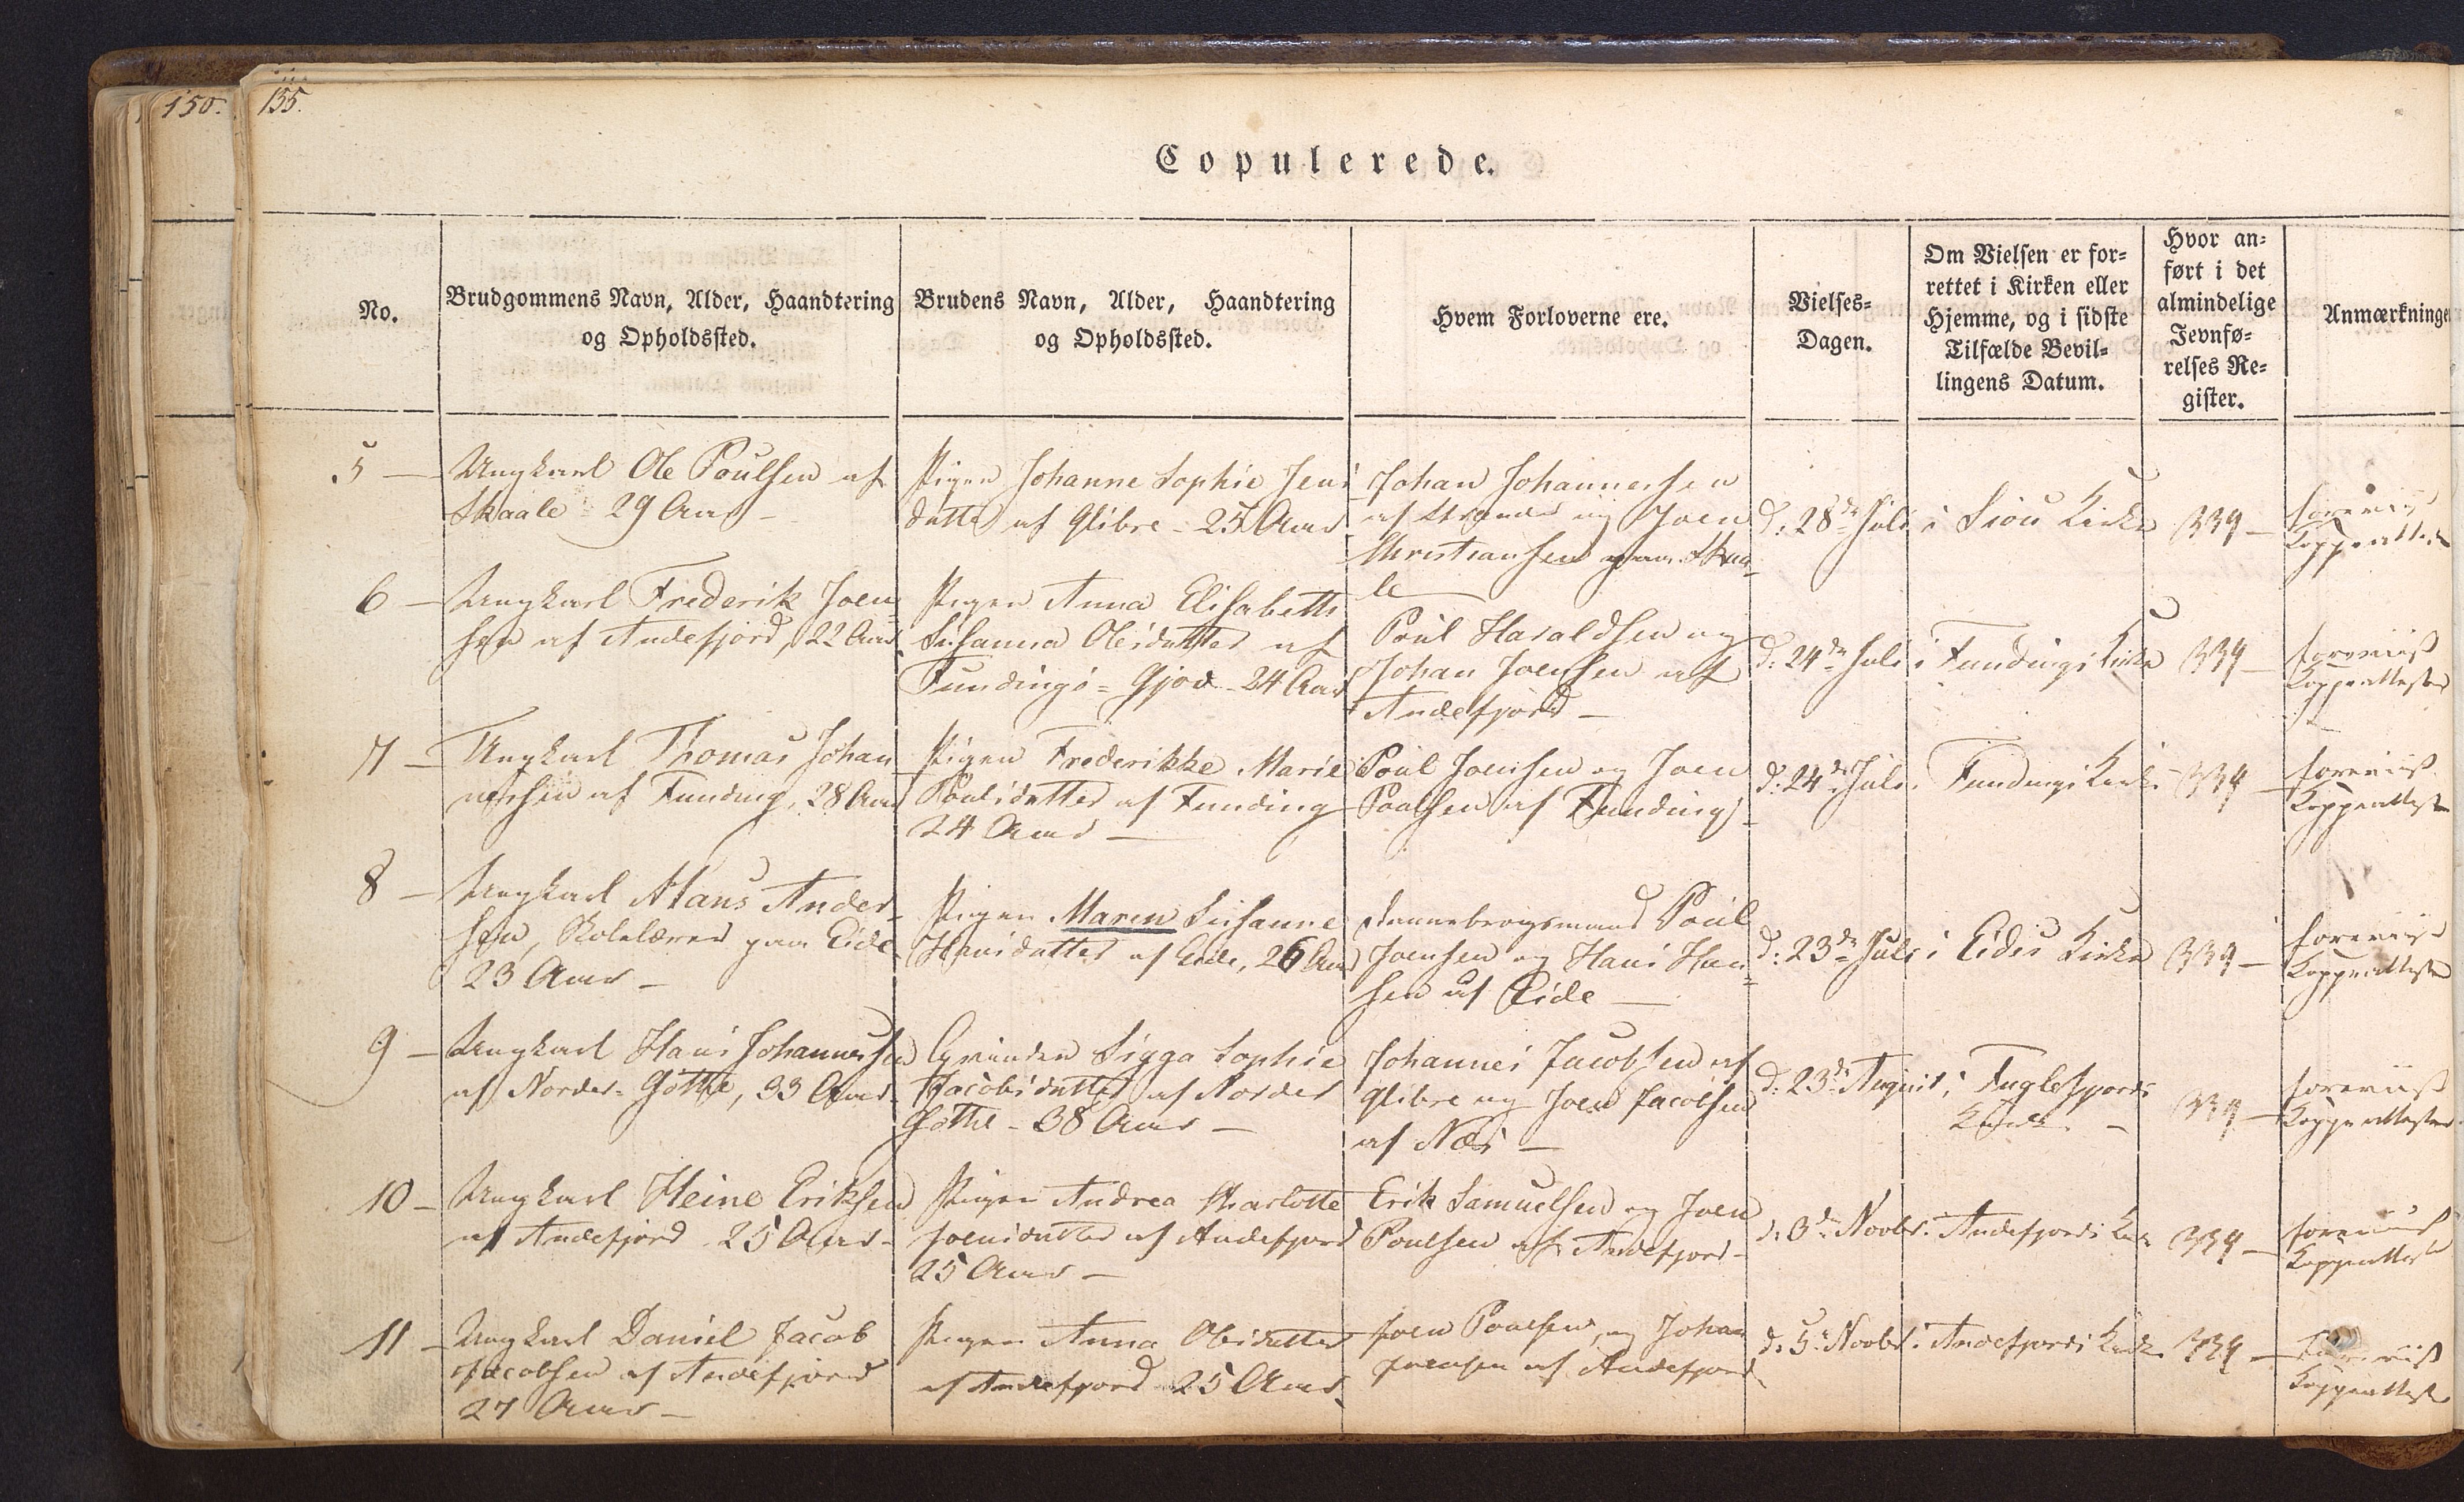 150.
155.
Copulerede.
No.
Brudgommens Navn, Alder, Haandtering
og Opholdssted.
Brudens Navn, Alder, Haandtering
og Opholdssted.
Hvem Forloverne ere.
Vielses-
Dagen.
Om Vielsen er for-
rettet i Kirken eller
Hjemme, og i sidste
Tilfælde Bevil-
lingens Datum.
Hvor an-
ført i det
almindelige
Jevnfø-
relses Re-
gister.
Anmærkninge
5 —
Ungkarl Ole Poulsen af
Skaale 29 Aar —
Pigen Johanne Sophie Jens
datter af Glibre - 25 Aar
Johan Johannessen
af Strender og Joen
Christiansen paa Skaa-
le —
d: 28de Juli
i Siov Kirke
339 —
foreviist
Koppeattester
6 —
Ungkarl Frederik Joen-
sen af Andefjord, 22 Aar
Pigen Anna Elisabeth
Susanna Olesdatter af
Fundings-Gjov - 24 Aar
Poul Haraldsen og
Johan Joensen af
Andefjord —
d: 24de Juli
i Fundings Kirke
339 —
foreviist
Koppeattester
7 —
Ungkarl Thomas Johan
nessen af Funding, 28 Aar
Pigen Frederikke Marie
Poulsdatter af Funding
24 Aar —
Poul Joensen og Joen
Poulsen af Funding
d: 24de Juli
Fundings Kirke
339
foreviist
Koppeattester
8 —
Ungkarl Hans Ander-
sen, Skolelærer paa Eide
23 Aar —
Pigen Maren Susanne
Hansdatter af Eide, 26 Aar
Dannebrogsmand Poul
Joensen og Hans Han-
sen af Eide —
d: 23de Juli
i Eides Kirke
339 —
foreviist
Koppeattester
9 —
Ungkarl Hans Johannessen
af Norder-Gøthe, 33 Aar
Qvinden Sigga Sophie
Jacobsdatter af Norder
Gøthe - 38 Aar —
Johannes Jacobsen af
Glibre og Joen Jacobsen
af Næs —
d: 23de August
i Fuglefjords
Kirke —
339 —
foreviist
Koppeattester
10 —
Ungkarl Heine Eriksen
af Andefjord 25 Aar —
Pigen Andrea Charlotte
Joensdatter af Andefjord
25 Aar —
Erik Samuelsen og Joen
Poulsen af Andefjord —
d: 3de Novbr.
i Andefjords Kirke
339 —
foreviist
Koppeattester
11 —
Ungkarl Daniel Jacob
Jacobsen af Andefjord
27 Aar —
Pigen Anna Olesdatter
af Andefjord 25 Aar
Joen Poulsen og Johan
Joensen af Andefjord
d: 5te Novbr.
i Andefjords Kirke
339 —
foreviist
Koppeattester